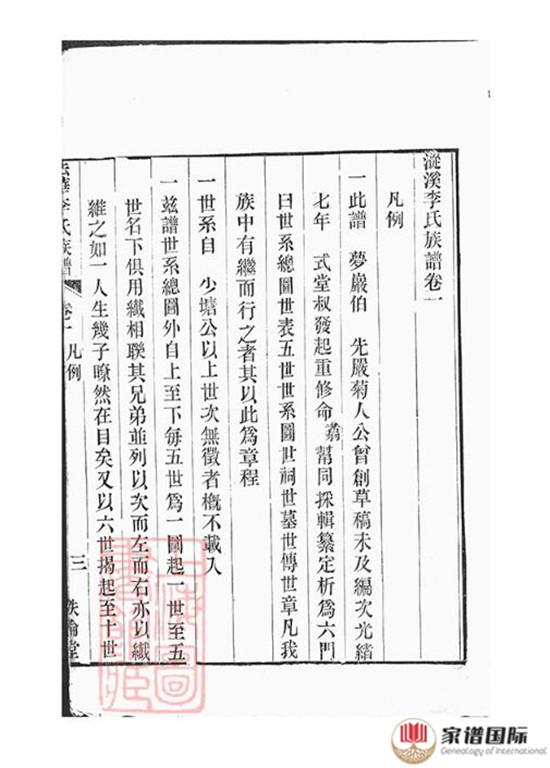 漎溪李氏族譜卷一
凡例
一此譜 夢巖伯 先嚴菊人公曾創草稿未及編次光緒
七年 式堂叔發起重修命 幫同採輯纂定析爲六門
曰世系總圖世表五世世系圖世祠世墓世傳世章凡我
族中有繼而行之者其以此爲章程
一世系自 少塘公以上世次無徵者槪不載入
一茲譜世系總圖外自上至下每五世爲一圖起一世至五
世名下俱用纖相聯其兄弟並列以次而左而右亦以纖
維之如一人生幾子瞭然在目矣又以六世揭起至十世
李氏族譜
卷一 凡例
三
家谱国际
Genealogy of International